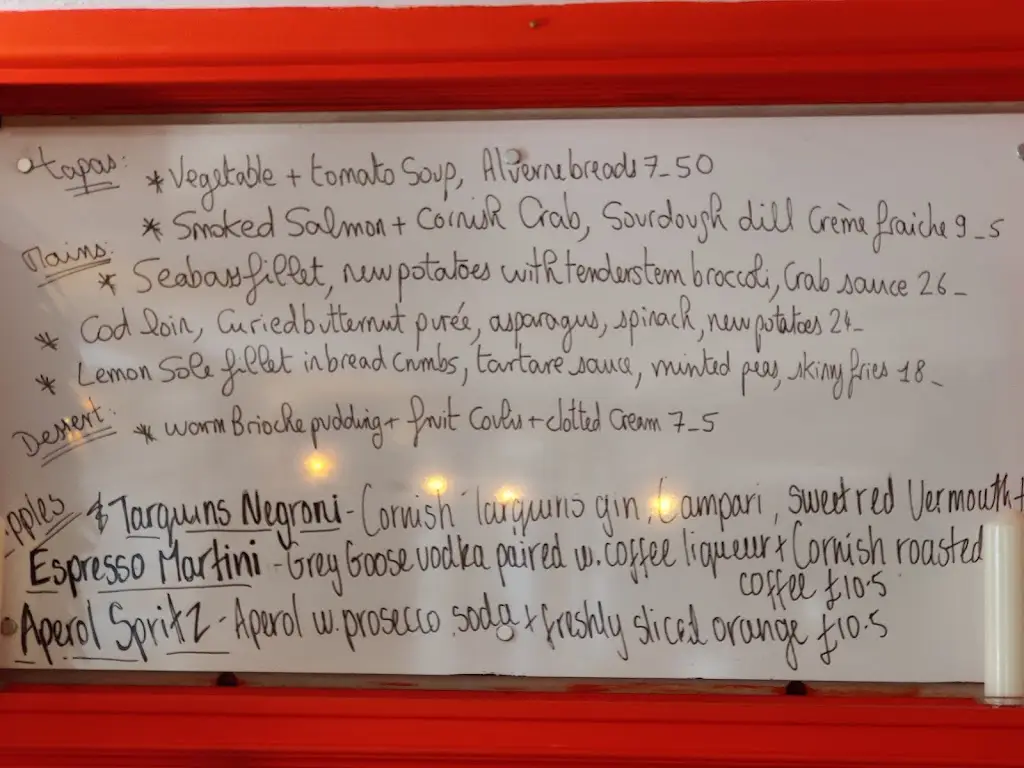 tapas: * Vegetable + tomato Soup, Alverne breads 7_50
* Smoked Salmon + Cornish Crab, Sourdough dill Crème fraiche 9_5
Mains: * Seabass fillet, new potatoes with tenderstem broccoli, Crab sauce 26_
* Cod loin, Curied butternut purée, asparagus, spinach, new potatoes 24_
* Lemon Sole fillet in bread Crumbs, tartare sauce, minted peas, skinny fries 18_
Dessert: * warm Brioche pudding + fruit + clotted Cream 7_5
Tarquins Negroni - Cornish Tarquins gin, Campari, sweet red Vermouth +
Espresso Martini - Grey Goose vodka paired w. coffee liqueur + Cornish roasted
coffee £10.5
Aperol Spritz - Aperol w. prosecco soda + freshly sliced orange £10.5